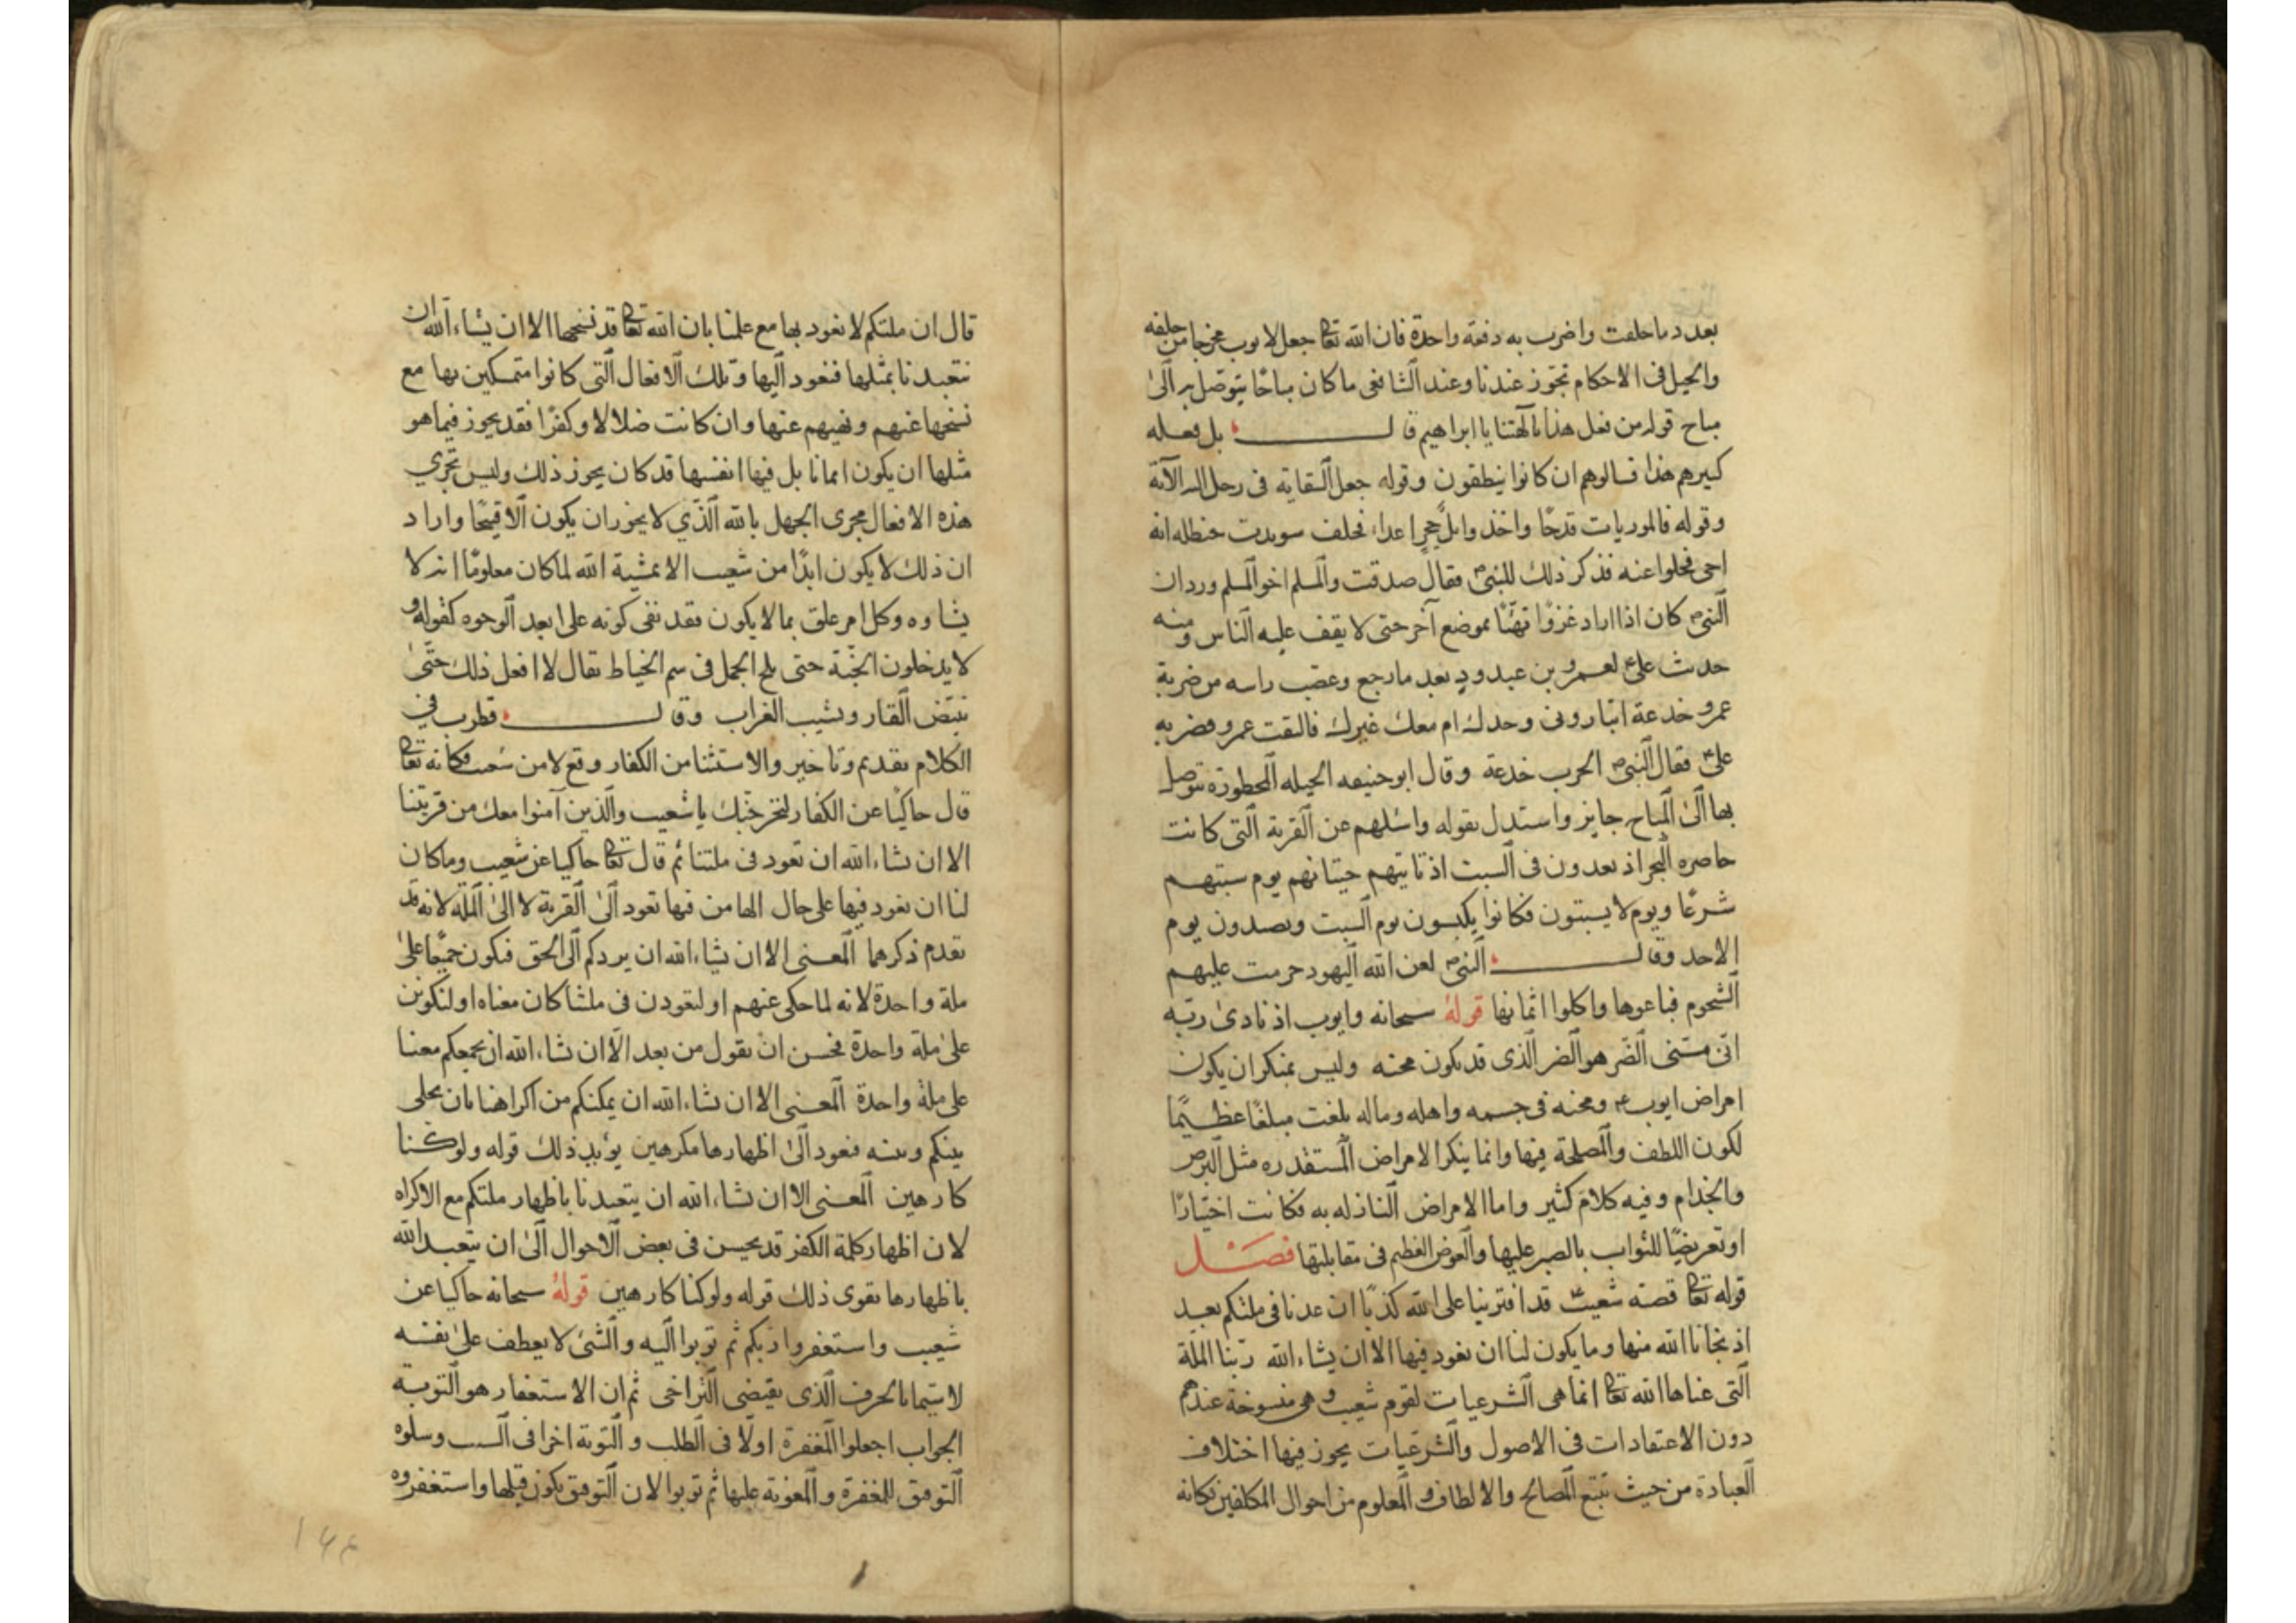 بعدد ما حلفت واضرب به دفعة واحدة فان الله تعا جعل لايوب مخرجا من حلفه
والحيل فى الاحكام تجوز عندنا وعند الشافعى ما كان مباحًا يتوصل به الى
مباح قوله من فعل هذا بآلهتنا يا ابراهيم قال بل فعله
كبيرهم هذا فسالوهم ان كانوا ينطقون وقوله جعل السقاية فى رحل الآية
وقوله فالموريات قدحًا واخذ وائل حجر اعداء فحلف سويد بن حنظله انه
اخى فخلوا عنه فذكر ذلك للنبىص فقال صدقت والمسلم اخو المسلم وردان
النبىص كان اذا اراد غزوًا بموضع آخر حتى لا يقف عليه الناس ومنه
حدث علىع لعمرو بن عبدود بعد ما رجع وعصب راسه من ضربة
عمرو خدعة اتبارونى وحدك ام معك غيرك فالتفت عمرو فضربه
علىع فقال النبىص الحرب خدعة وقال ابو حنيفه الحيله المحظورة يتوصل
بها الى المباح جايز واستدل بقوله واسئلهم عن القرية التى كانت
حاضره البحر اذ يعدون فى السبت اذ تاتيهم حيتانهم يوم سبتهم
شرعًا ويوم لا يسبتون فكانوا يكبسون يوم السبت ويصدون يوم
الاحد وقال النبىص لعن الله اليهود حرمت عليهم
الشحوم فباعوها واكلوا اثمانها قوله سبحانه وايوب اذ نادى ربّه
انّى مسّنى الضّر هو الضر الذى قد يكون محنه وليس بمنكر ان يكون
امراض ايوبع ومحنه فى جسمه واهله وماله بلغت مبلغًا عظيمًا
لكون اللطف والمصلحة فيها وانما ينكر الامراض المستقذره مثل البرص
والجذام وفيه كلام كثير واما الامراض النازله به فكانت اختبارًا
او تعريضًا للثواب بالصبر عليها والعوض العظيم فى مقابلتها فصل
قوله تعا قصة شعيبع قد افترينا على الله كذبًا ان عدنا فى ملتكم بعد
اذ نجانا الله منها وما يكون لنا ان نعود فيها الا ان يشاء الله ربنا الملة
التى عناها الله تعا انما هى الشرعيات لقوم شعيب وهى منسوخة عندهم
دون الاعتقادات فى الاصول والشرعيات يجوز فيها اختلاف
العبادة من حيث تتبع المصالح والالطاف والمعلوم من احوال المكلفين فكانه
قال ان ملتكم لا نعود بها مع علمنا بان الله تعا قد نسخها الا ان يشاء الله ان
يتعبدنا بمثلها فنعود اليها وتلك الافعال التى كانوا متمسكين بها مع
نسخها عنهم ونهيهم عنها وان كانت ضلالا وكفرًا فقد يجوز فيما هو
مثلها ان يكون ايمانا بل فيها انفسها قد كان يجوز ذلك وليس تجرى
هذه الافعال مجرى الجهل بالله الذى لا يجوز ان يكون الا قبيحًا واراد
ان ذلك لا يكون ابدًا من شعيب الا بمشية الله لما كان معلومًا انه لا
يشاوه وكل امر علق بما لا يكون فقد نفى كونه على ابعد الوجوه كقوله و
لا يدخلون الجنّة حتى يلج الجمل فى سم الخياط يقال لا افعل ذلك حتّى
يبيّض القار ويشيب الغراب وقال قطرب فى
الكلام تقديم وتاخير والاستثنا من الكفار وقع لا من شعيب فكانه تعا
قال حاكيًا عن الكفار لنخرجنّك يا شعيب والذين آمنوا معك من قريتنا
الا ان يشاء الله ان تعود فى ملتنا ثم قال تعا حاكيا عن شعيب وما كان
لنا ان نعود فيها على حال الها من فيها تعود الى القرية لا الى الملة لانه قد
تقدم ذكرهما المعنى الا ان يشاء الله ان يردكم الى الحق فنكون جميعًا على
ملة واحدة لانه لما حكى عنهم او لتعودن فى ملتنا كان معناه او لنكونن
على ملة واحدة فحسن ان يقول من بعد الا ان يشاء الله ان يجمعكم معنا
على ملة واحدة المعنى الا ان يشاء الله ان يمكنكم من اكراهنا بان يخلى
بينكم وبينه فنعود الى اظهارها مكرهين يؤيد ذلك قوله ولو كنا
كارهين المعنى الا ان يشاء الله ان يتعبدنا باظهار ملتكم مع الاكراه
لان اظهار كلمة الكفر قد يحسن فى بعض الاحوال الى ان يتعبد الله
باظهارها يقوى ذلك قوله ولو كنا كارهين قوله سبحانه حاكيا عن
شعيب واستغفروا ربكم ثم توبوا اليه والشىء لا يعطف على نفسه
لا سيما بالحرف الذى يقتضى التراخى ثم ان الاستغفار هو التوبة
الجواب اجعلوا المغفرة اولًا فى الطلب والتوبة اخرا فى السبب وسلوه
التوفيق للمغفرة والمعونة عليها ثم توبوا لان التوفيق يكون قبلها واستغفروه